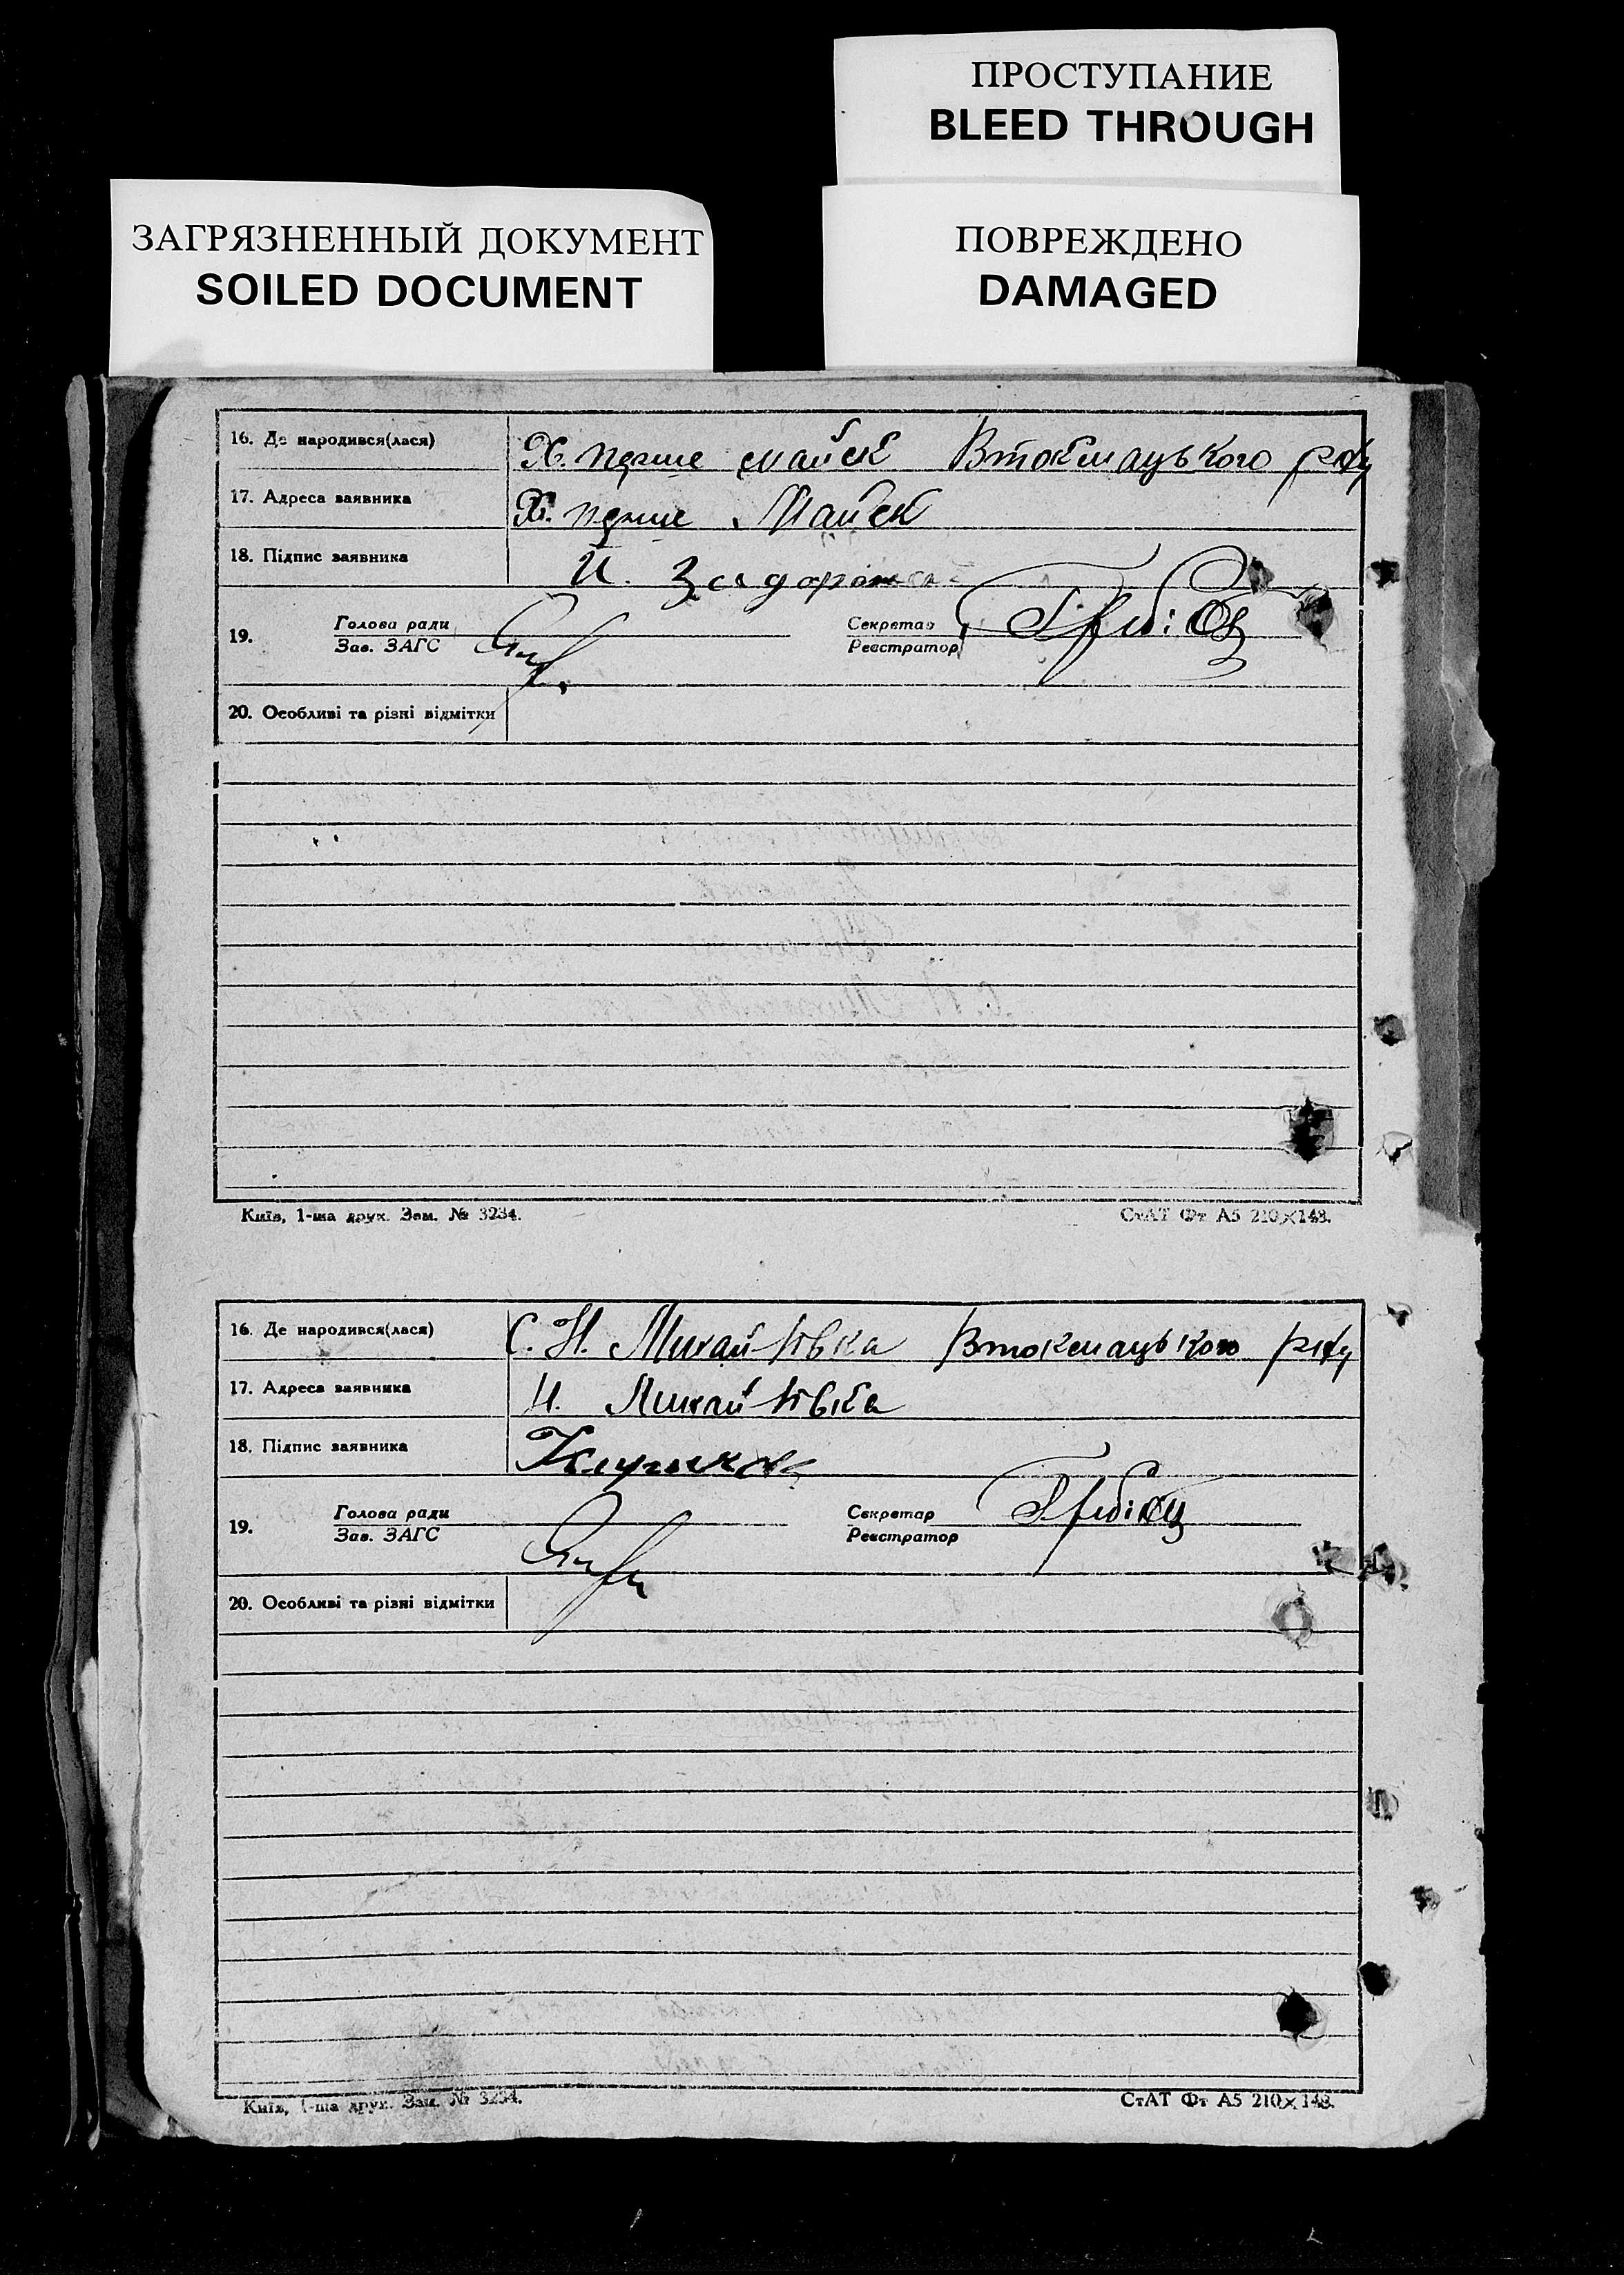 ПРОСТУПАНИЕ
BLEED THROUGH
ЗАГРЯЗНЕННЫЙ ДОКУМЕНТ
SOILED DOCUMENT
ПОВРЕЖДЕНО
DAMAGED
16. Де народився(лася) Х. перше майск Втокмацького р-ну
17. Адреса заявника Х. перше Майск
18. Підпис заявника И.
19. Голова ради Секретар
Зав. ЗАГС Реєстратор
20. Особливі та різні відмітки
Київ, 1-ша друк. Зам. № 3234. СтАТ Фт А5 210×148.
16. Де народився(лася) С. Н. Михайлівка Втокмацького р-ну
17. Адреса заявника Н. Михайлівка
18. Підпис заявника
19. Голова ради Секретар
Зав. ЗАГС Реєстратор
20. Особливі та різні відмітки
Київ, 1-ша друк. Зам. № 3234. СтАТ Фт А5 210×148.